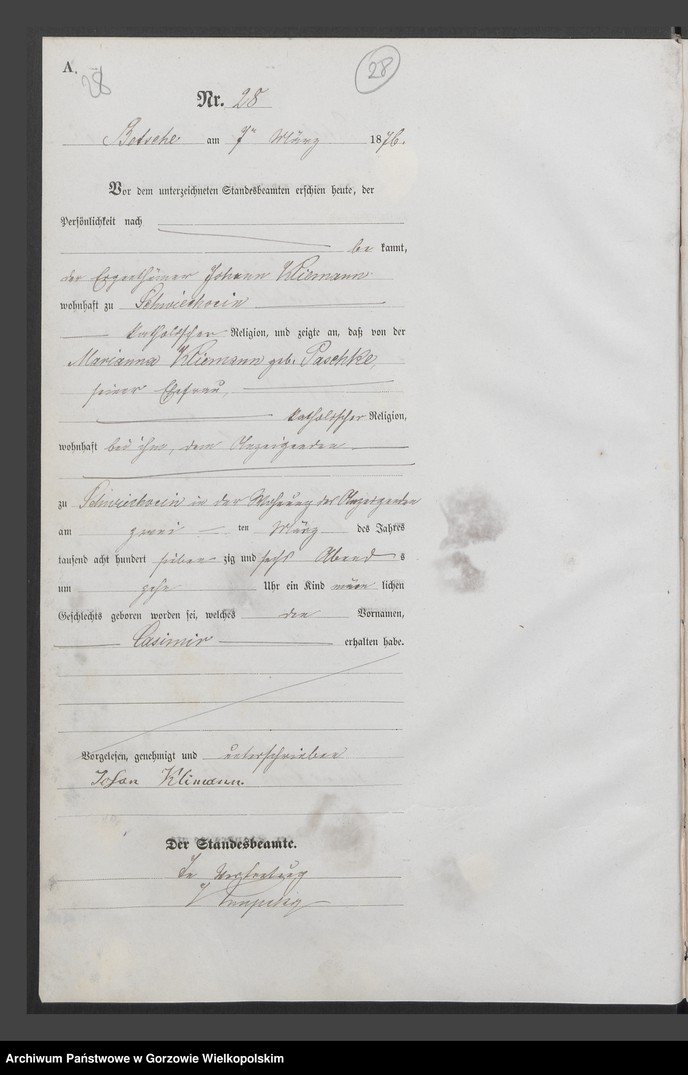 A.
28
28
Nr. 28
Betsche am 7ten März 1876.
Vor dem unterzeichneten Standesbeamten erschien heute, der
Persönlichkeit nach
be kannt,
der Eigenthümer Johann Kliemann
wohnhaft zu Schwiechocin
katholischer Religion, und zeigte an, daß von der
Marianna Kliemann geb. Paschke,
seiner Ehefrau,
katholischer Religion,
wohnhaft bei ihm, dem Anzeigenden
zu Schwiechocin in der Wohnung des Anzeigenden
am zwei ten März des Jahres
tausend acht hundert sieben zig und sechs Abend s
um zehn Uhr ein Kind män lichen
Geschlechts geboren worden sei, welches den Vornamen,
Casimir erhalten habe.
Vorgelesen, genehmigt und unterschrieben
Johan Klimann
Der Standesbeamte.
In Vertretung
Archiwum Państwowe w Gorzowie Wielkopolskim